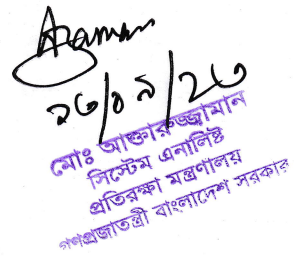 Azaman
২৩/০৯/২৩
মোঃ আক্তারুজ্জামান
সিস্টেম এনালিষ্ট
প্রতিরক্ষা মন্ত্রণালয়
গণপ্রজাতন্ত্রী বাংলাদেশ সরকার